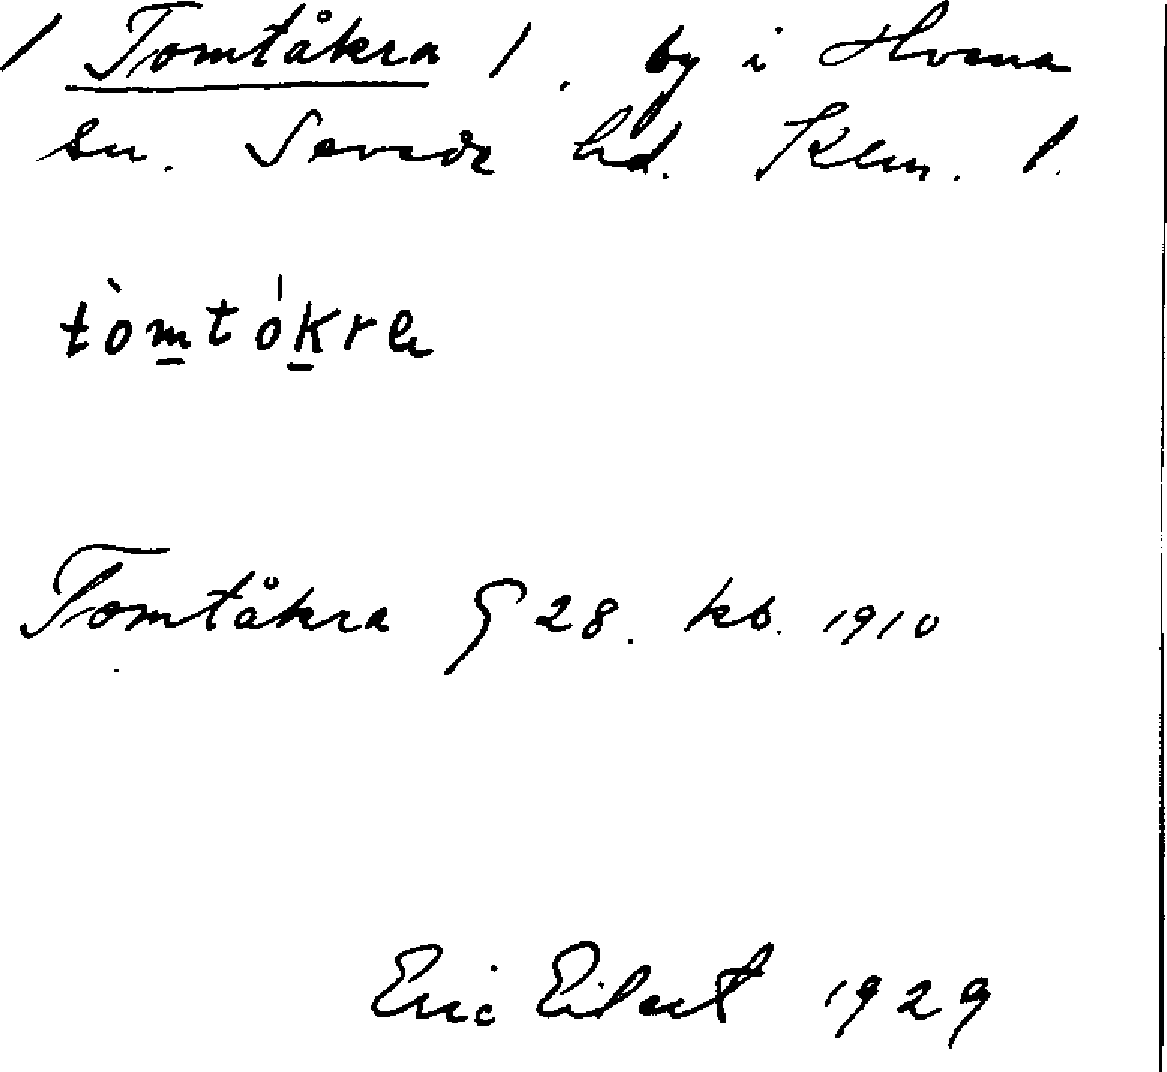 / Tomtåkra /. by i Hvena
sn. Sevede hd. Klm. l.
tòmtókra
Tomtåkra § 28. kb. 1910
Eric Eilert 1929